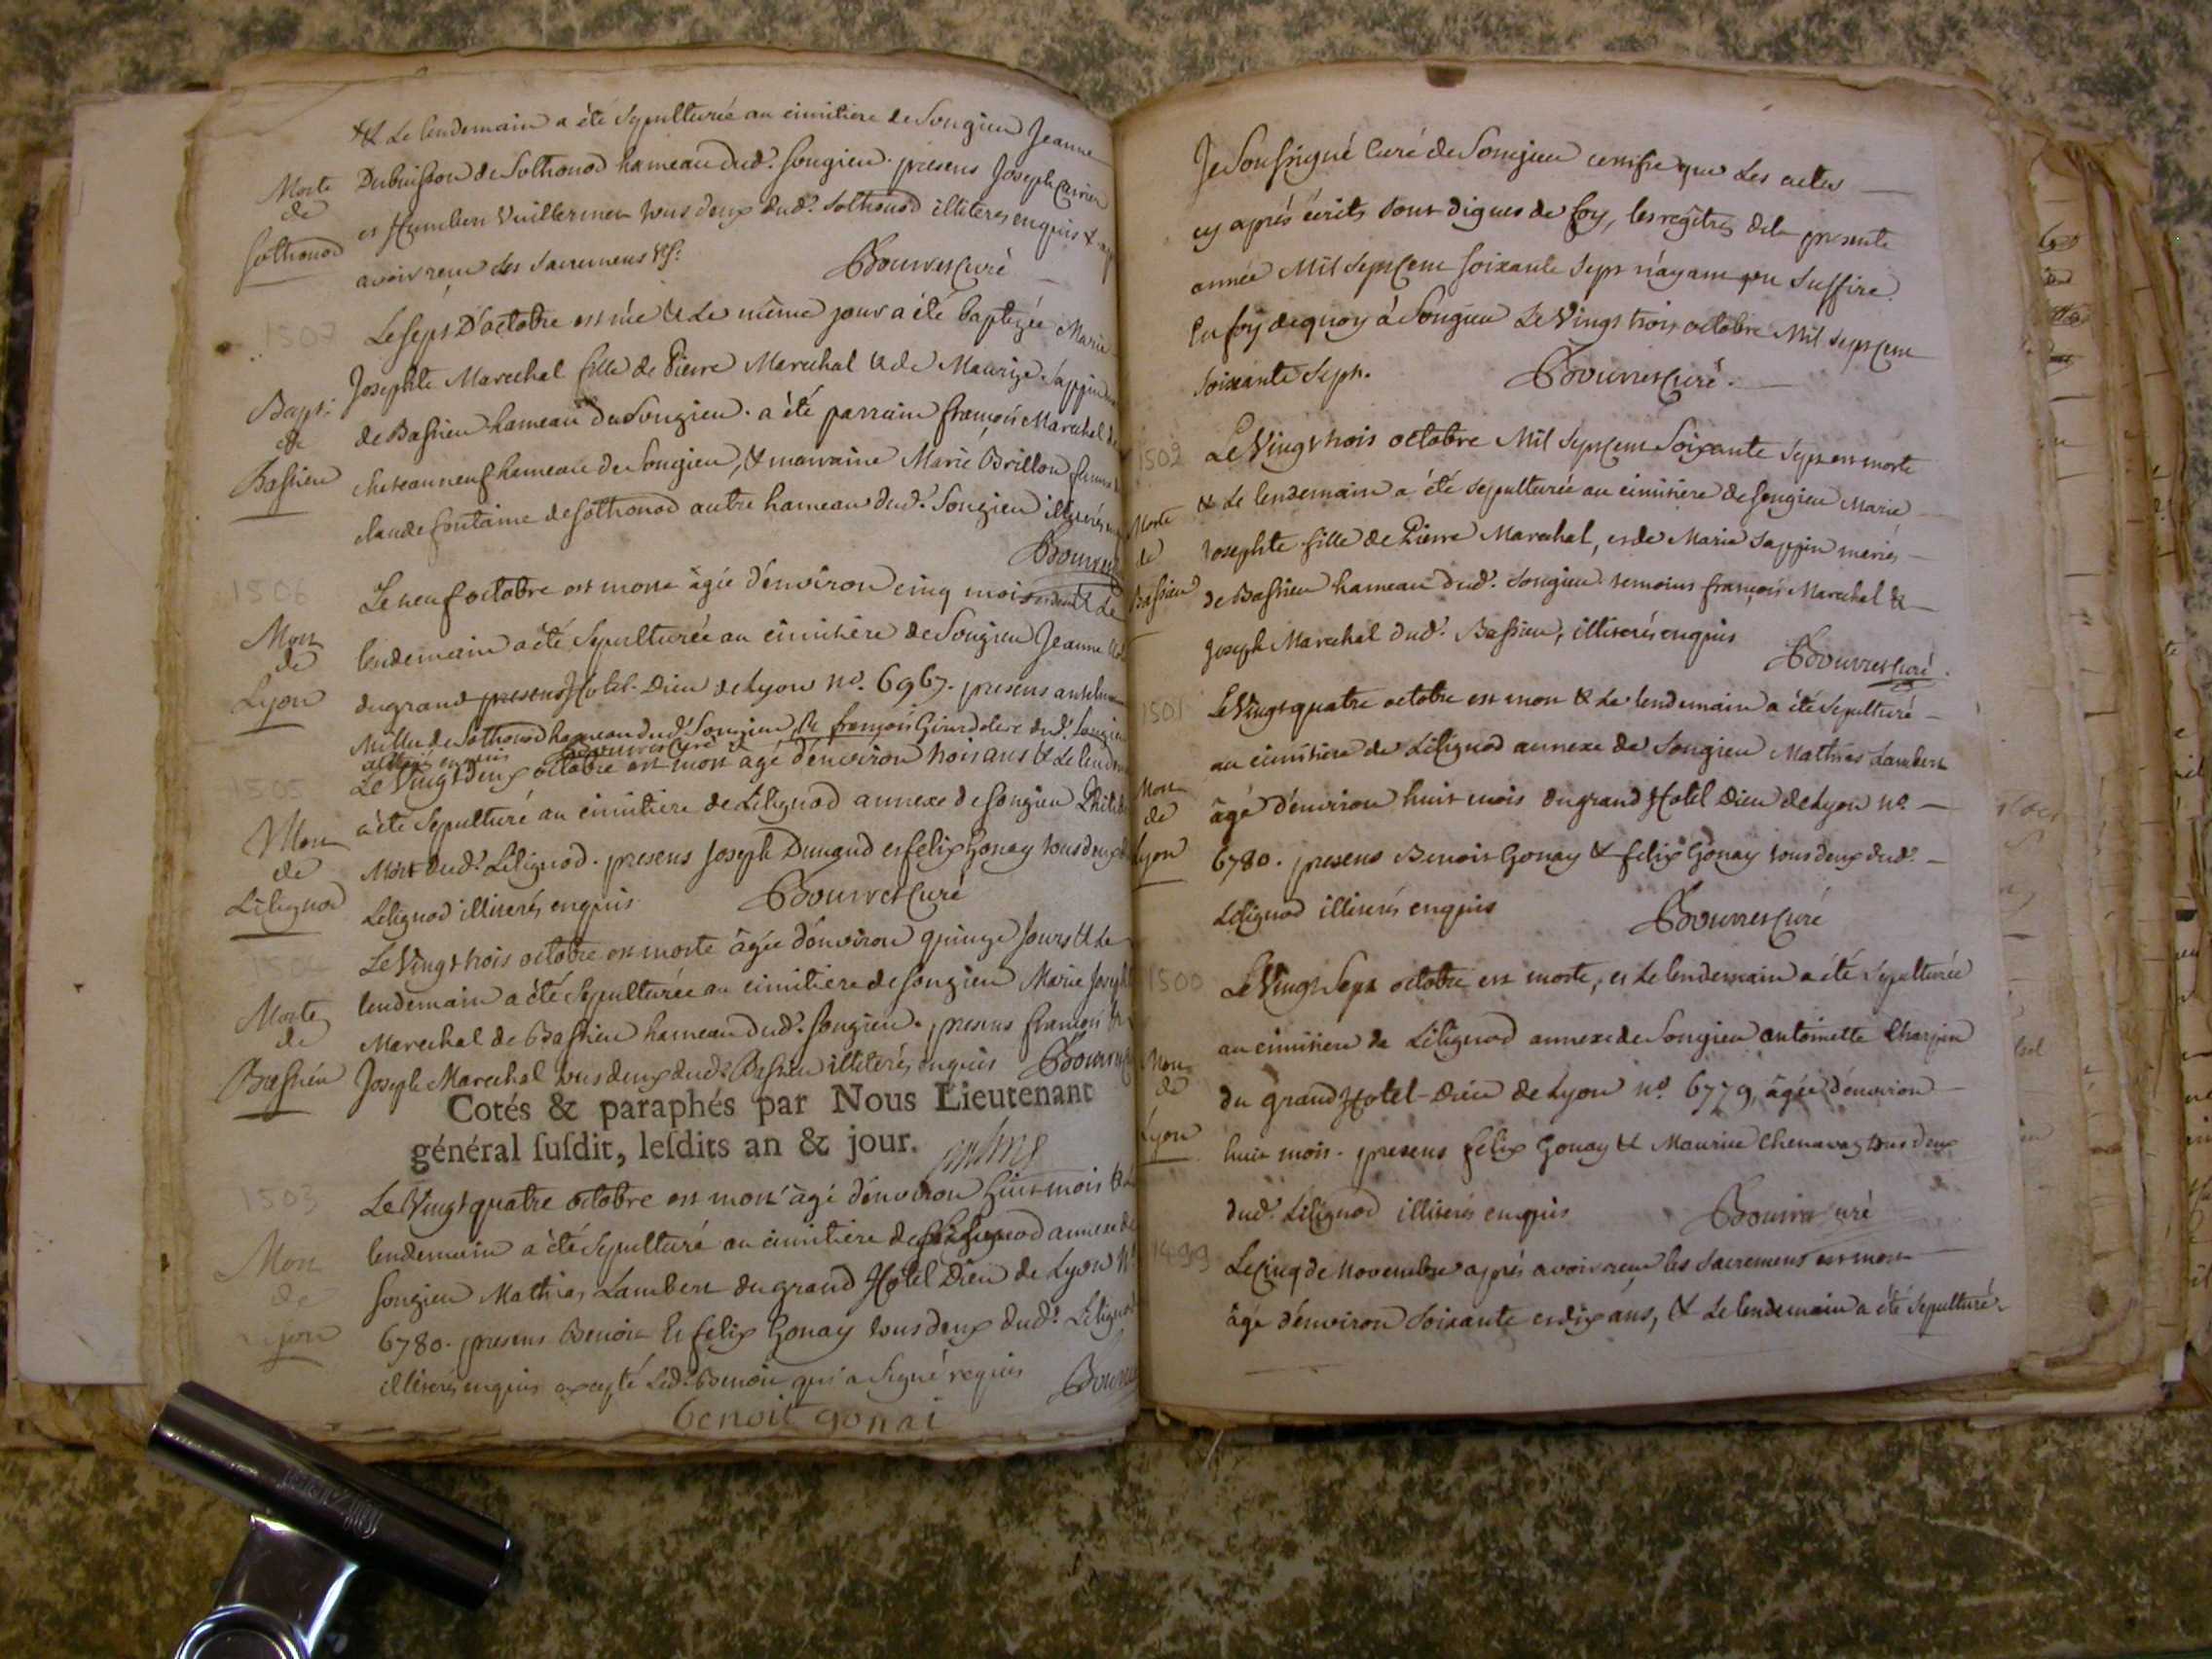 & Le lendemain a été Sepulturée au cimitiere de Songieu Jeanne
Dubuisson de Sothonod hameau dud. Songieu. presens Joseph Carrier
Morte
de
Sothonod
et Humbert Vuillermet tous deux dud. Sothonod illiterés enquis &
avoir reçu Les Sacremens
Bouvret Curé
1507
Bapt.
de
Bassieu
Le Sept D'octobre est née & Le même jour a été baptizée Marie
Josephte Marechal fille de Pierre Marechal & de Maurize Sappin
de Bassieu hameau du Songieu. a été parrain françois Marechal de
chateauneuf hameau de Songieu, & marraine Marie Brillon femme
claude fontaine de Sothonod autre hameau dud. Songieu illiterés
Bouvret
1506
Mort
de
Lyon
Le neuf octobre est morte âgée d'environ cinq mois & Le
lendemain a été Sepulturée au cimitiere de Songieu Jeanne
du grand Hotel-Dieu de Lyon no. 6967. presens
de Sothonod hameau dud. Songieu & françois dud. Songieu
enquis Bouvret Curé
1505
Mort
de
Lilignod
Le Vingt deux octobre est mort agé d'environ trois ans & Le lendemain
a été Sepulturé au cimitiere de Lilignod annexe de Songieu
dud. Lilignod. presens Joseph Dunand et felix Gonay tous deux
Lilignod illiterés enquis
Bouvret Curé
1504
Morte
de
Bassieu
Le Vingt trois octobre est morte âgée d'environ quinze Jours & Le
lendemain a été Sepulturée au cimitiere de Songieu Marie Joseph
Marechal de Bassieu hameau dud. Songieu. presens françois &
Joseph Marechal tous deux dud. Bassieu illiterés enquis Bouvret
Cotés & paraphés par Nous Lieutenant
général ſuſdit, leſdits an & jour.
1503
Mort
de
Lyon
Le Vingt quatre octobre est mort âgé d'environ huit mois &
lendemain a été Sepulturé au cimitiere de Lilignod annexe de
Songieu Mathias Lambert du grand Hotel Dieu de Lyon No
6780. presens Benoit & felix Gonay tous deux dud. Lilignod
illiterés enquis excepté Led. Benoit qui a Signé requis Bouvret
benoit gonai
Je Soussigné Curé de Songieu certifie que Les actes
cy après écrits sont dignes de foy, les regîtres de la presente
année Mil Sept Cent Soixante Sept n'ayant pu Suffire.
En foy de quoy à Songieu Le Vingt trois octobre Mil Sept Cent
Soixante Sept.
Bouvret Curé.
1502
Morte
de
Bassieu
Le Vingt trois octobre Mil Sept Cent Soixante Sept est morte
& Le lendemain a été Sepulturée au cimitiere de Songieu Marie
Josephte fille de Pierre Marechal, et de Marie Sappin mariés
de Bassieu hameau dud. Songieu. temoins françois Marechal &
Joseph Marechal dud. Bassieu, illiterés enquis
Bouvret Curé
1501
Mort
de
Lyon
Le Vingt quatre octobre est mort & Le lendemain a été Sepulturé
au cimitiere de Lilignod annexe de Songieu Mathias Lambert
âgé d'environ huit mois du grand Hotel Dieu de Lyon no.
6780. presens Benoit Gonay & felix Gonay tous deux dud.
Lilignod illiterés enquis
Bouvret Curé
1500
Mort
de
Lyon
Le Vingt Sept octobre est morte, et Le lendemain a été Sepulturée
au cimitiere de Lilignod annexe de Songieu antoinette Charpin
du grand Hotel-Dieu de Lyon no. 6779, âgée d'environ
huit mois. presens felix Gonay & Maurice Chenavaz tous deux
dud. Lilignod illiterés enquis
Bouvret Curé
1499
Le Cinq de Novembre après avoir reçu les Sacremens est mort
âgé d'environ Soixante et dix ans, & Le lendemain a été Sepulturé